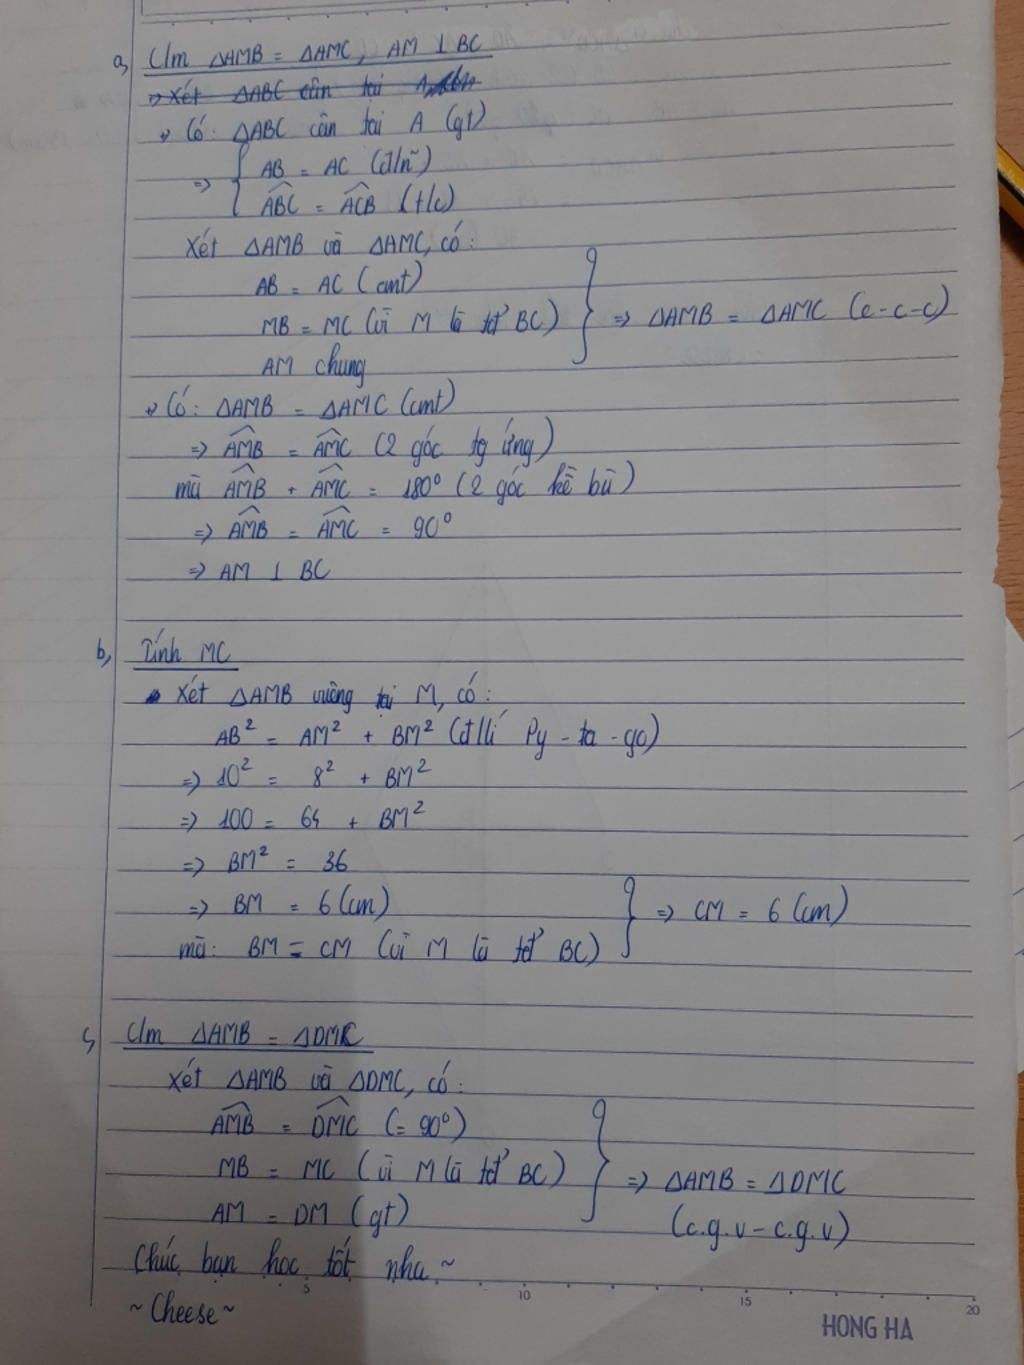 a, C/m ΔAMB = ΔAMC, AM ⊥ BC
→ Xét ΔABC cân tại
→ Có: ΔABC cân tại A (gt)
=> { AB = AC (đ/n)
ABC = ACB (t/c)
Xét ΔAMB và ΔAMC, có:
AB = AC (cmt)
MB = MC (vì M là tđ' BC) } => ΔAMB = ΔAMC (c-c-c)
AM chung
→ Có: ΔAMB = ΔAMC (cmt)
=> AMB = AMC (2 góc tg ứng)
mà AMB + AMC = 180° (2 góc kề bù)
=> AMB = AMC = 90°
=> AM ⊥ BC
b, Tính MC
Xét ΔAMB vuông tại M, có:
AB² = AM² + BM² (đ/lí Py-ta-go)
=> 10² = 8² + BM²
=> 100 = 64 + BM²
=> BM² = 36
=> BM = 6 (cm) } => CM = 6 (cm)
mà: BM = CM (vì M là tđ' BC)
c, C/m ΔAMB = ΔDMC
Xét ΔAMB và ΔDMC, có:
AMB = DMC (= 90°)
MB = MC (vì M là tđ' BC) } => ΔAMB = ΔDMC
AM = DM (gt) (c.g.v - c.g.v)
Chúc bạn học tốt nha ~
~ Cheese ~
5 10 15 20
HONG HA